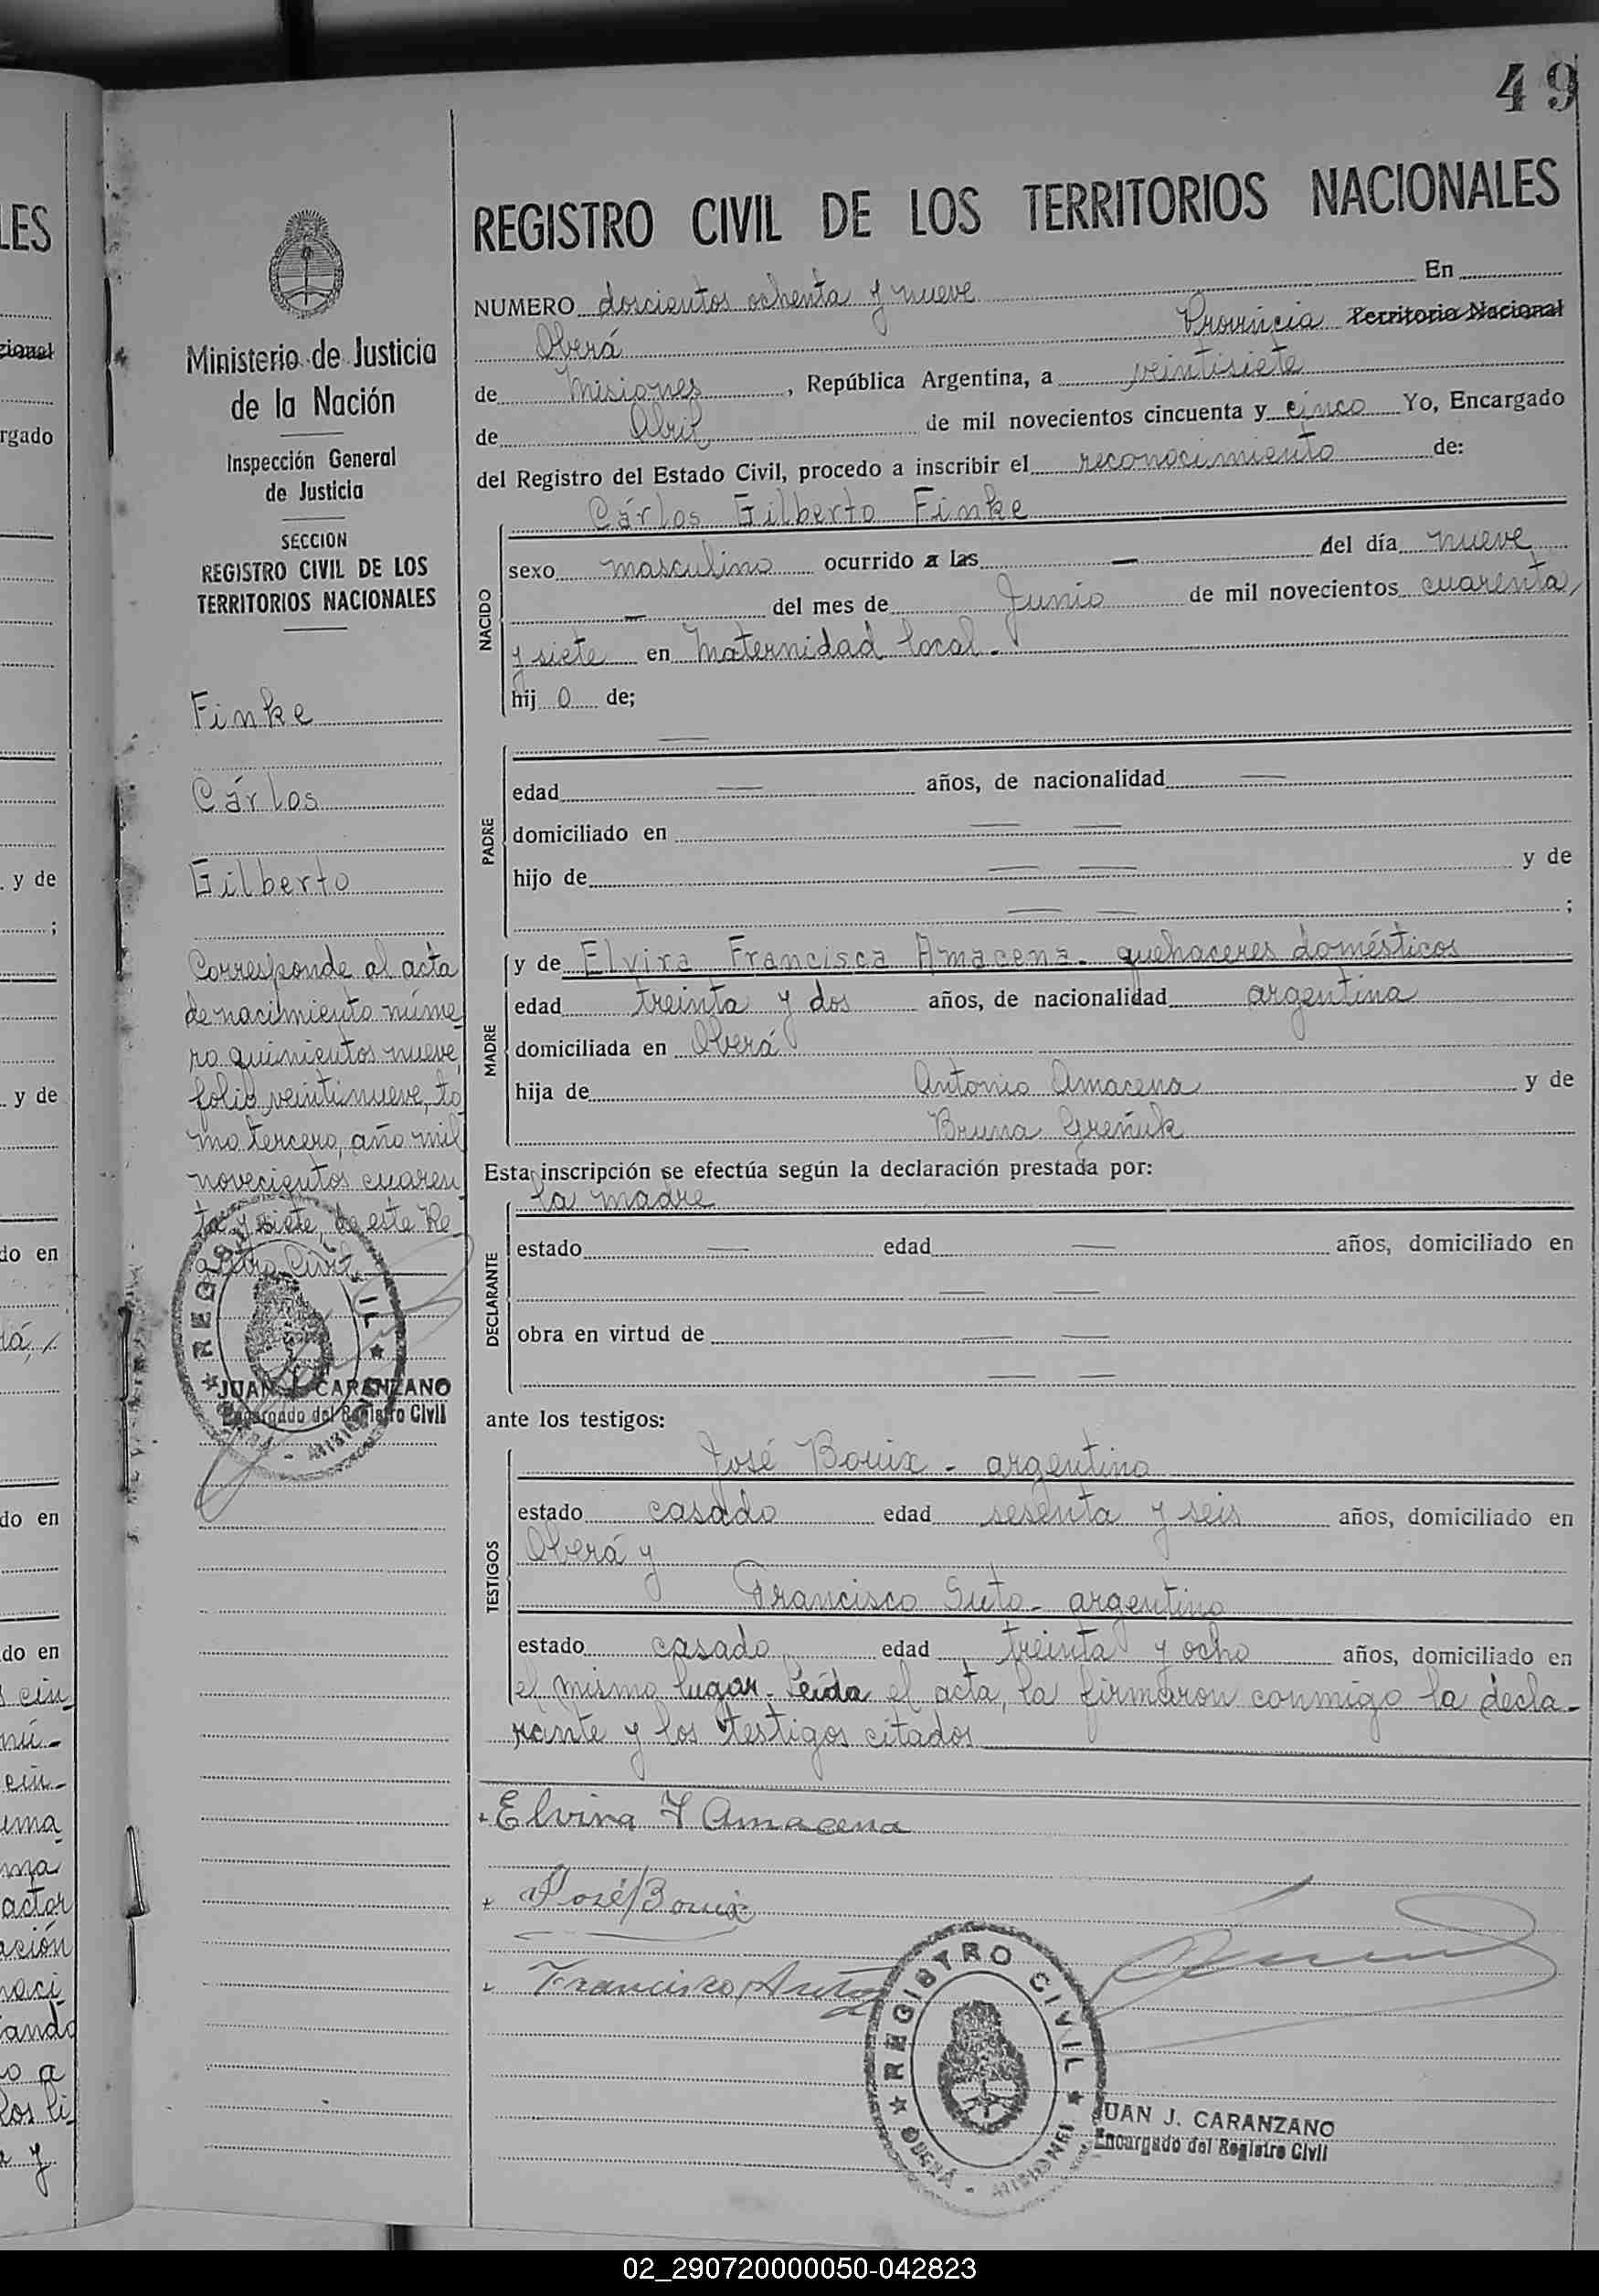 49
REGISTRO CIVIL DE LOS TERRITORIOS NACIONALES
NUMERO doscientos ochenta y nueve En
Oberá Provincia Territorio Nacional
de Misiones, República Argentina, a veintisiete
de Abril de mil novecientos cincuenta y cinco Yo, Encargado
del Registro del Estado Civil, procedo a inscribir el reconocimiento de:
NACIDO
Cárlos Gilberto Finke
sexo masculino ocurrido a las — del día nueve
— del mes de Junio de mil novecientos cuarenta
y siete en Maternidad local.
hijo de;
PADRE
—
edad — años, de nacionalidad —
domiciliado en — —
hijo de — — y de
— — ;
MADRE
y de Elvira Francisca Amacena. quehaceres domésticos
edad treinta y dos años, de nacionalidad argentina
domiciliada en Oberá
hija de Antonio Amacena y de
Bruna Greñuk
Esta inscripción se efectúa según la declaración prestada por:
DECLARANTE
la madre
estado — edad — años, domiciliado en
— —
obra en virtud de — —
— —
ante los testigos:
TESTIGOS
José Bouix - argentino
estado casado edad sesenta y seis años, domiciliado en
Oberá y
Francisco Suto - argentino
estado casado edad treinta y ocho años, domiciliado en
el mismo lugar. Leída el acta, la firmaron conmigo la decla-
rante y los testigos citados
Elvira F Amacena
José Bouix
Francisco Suto
REGISTRO CIVIL
OBERÁ - MISIONES
JUAN J. CARANZANO
Encargado del Registro Civil
Ministerio de Justicia
de la Nación
Inspección General
de Justicia
SECCION
REGISTRO CIVIL DE LOS
TERRITORIOS NACIONALES
Finke
Cárlos
Gilberto
Corresponde al acta
de nacimiento núme-
ro quinientos nueve,
folio veintinueve, to-
mo tercero, año mil
novecientos cuaren-
ta y siete, de este Re
gistro Civil.
REGISTRO CIVIL
OBERÁ - MISIONES
JUAN J. CARANZANO
Encargado del Registro Civil
LES
cional
rgado
y de
;
y de
do en
lá,
do en
do en
cin
nú-
cin-
uma
actor
ación
naci
ando
o a
los li
y
02_290720000050-042823